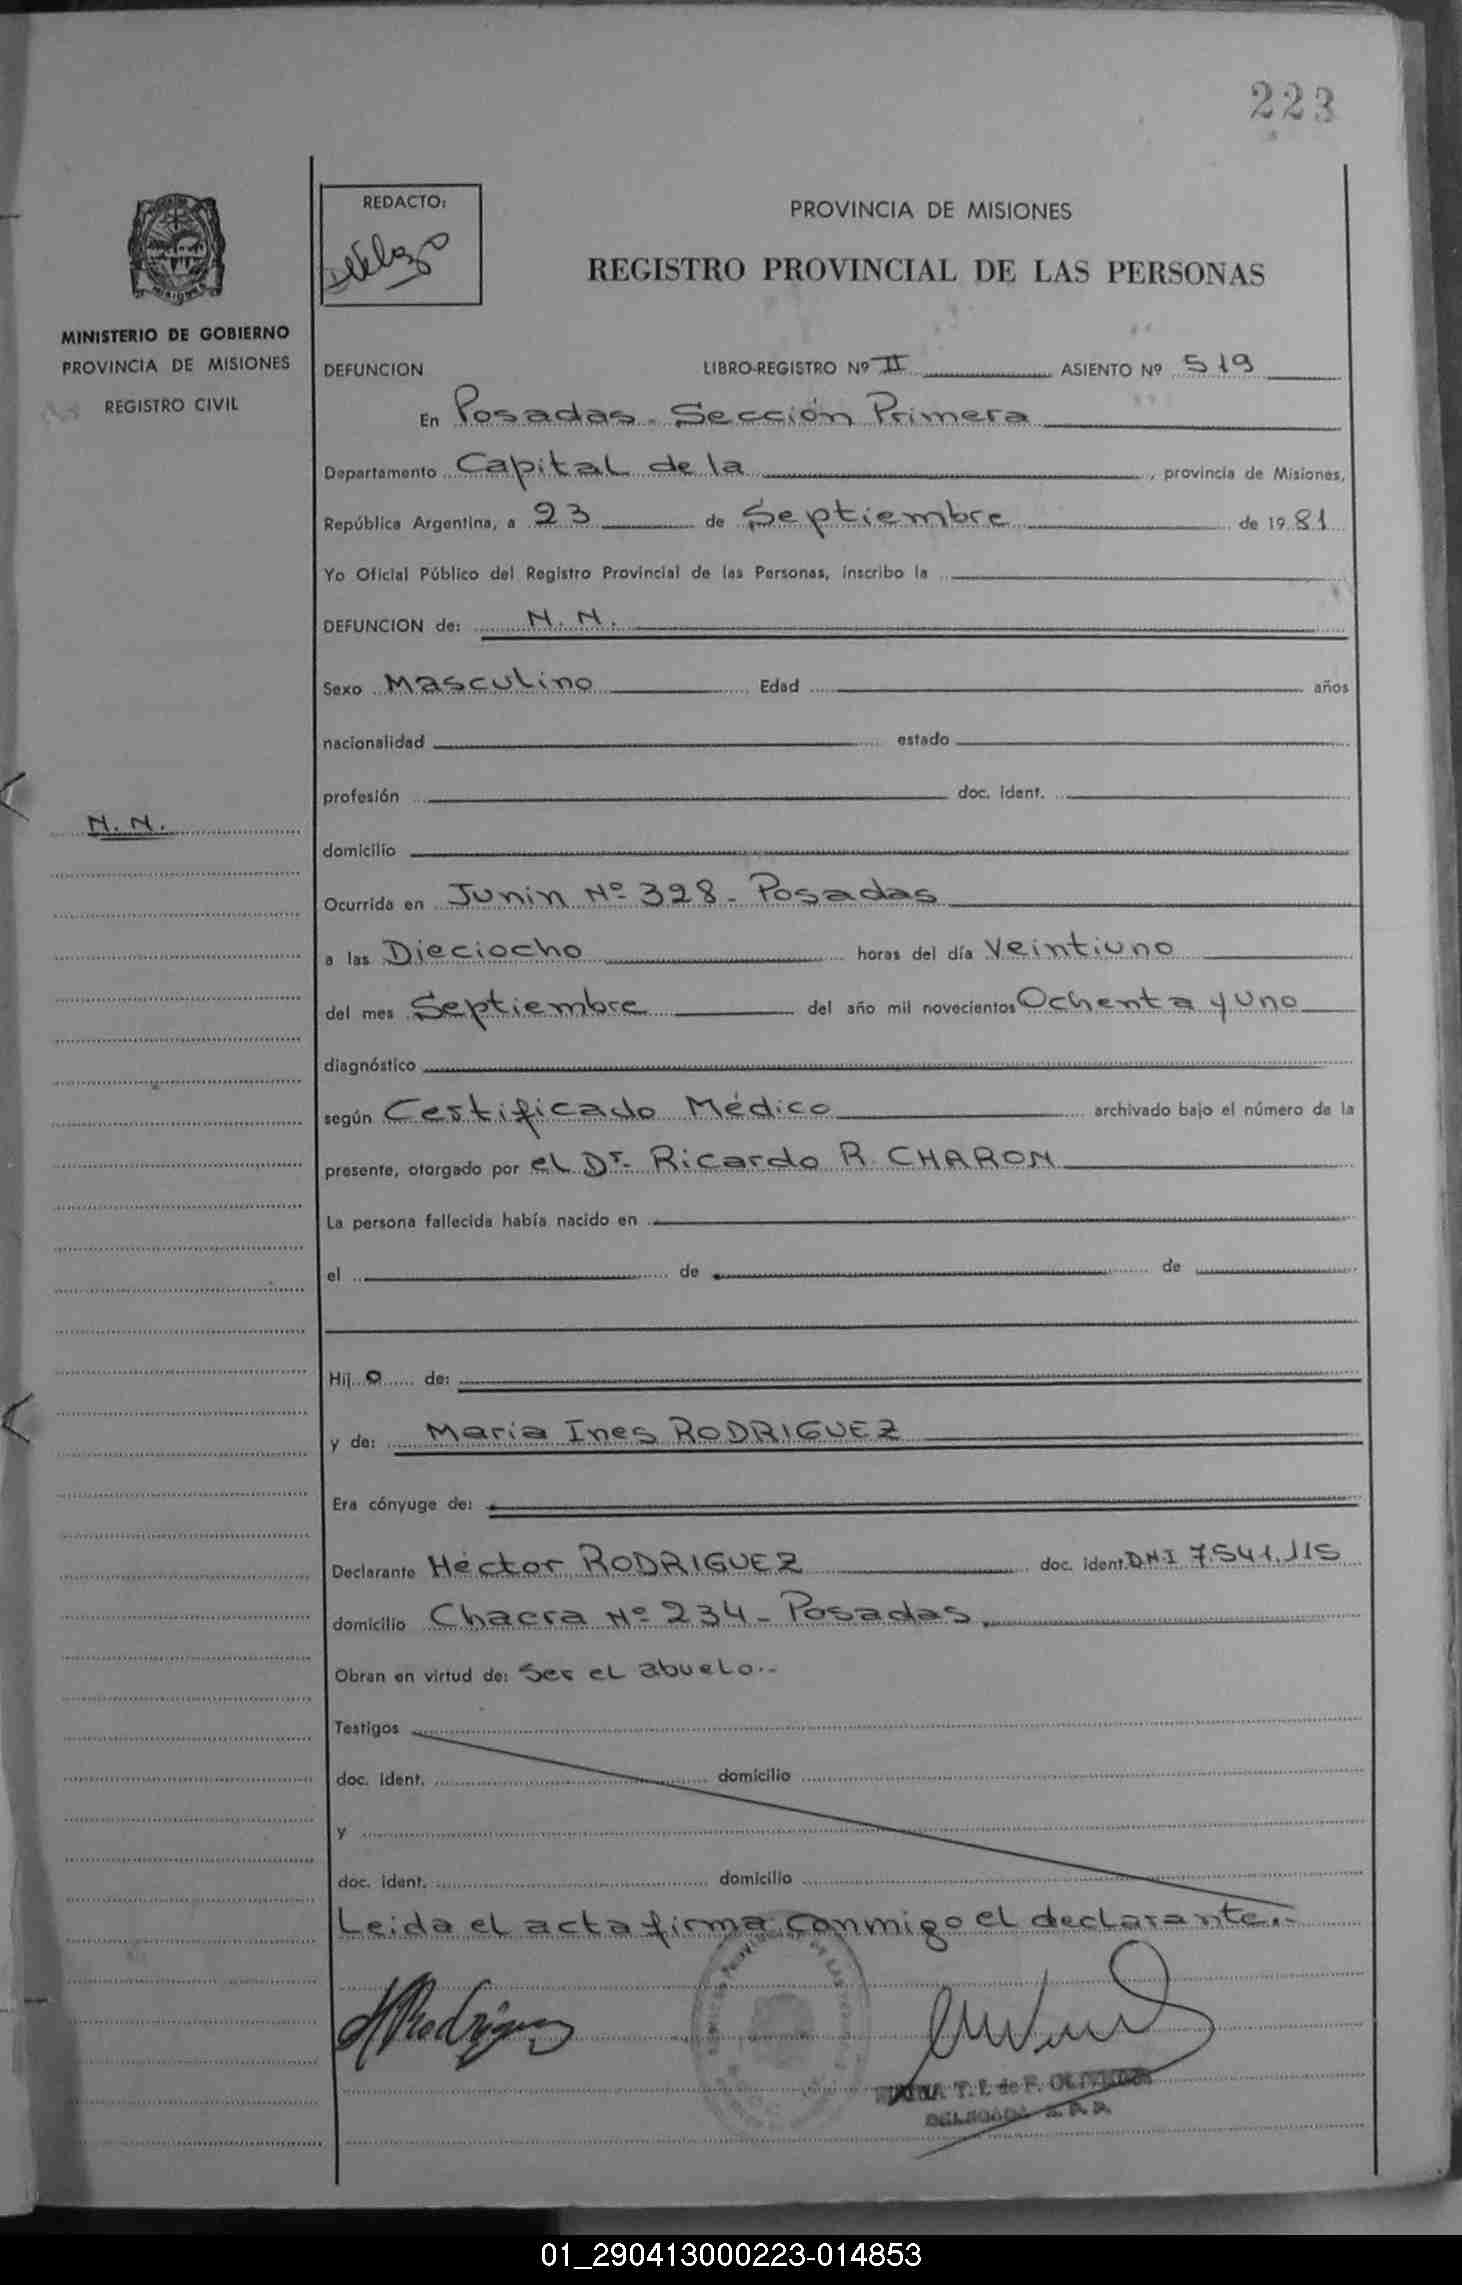 223
REDACTO:
PROVINCIA DE MISIONES
REGISTRO PROVINCIAL DE LAS PERSONAS
MINISTERIO DE GOBIERNO
PROVINCIA DE MISIONES
REGISTRO CIVIL
DEFUNCION LIBRO-REGISTRO Nº II ASIENTO Nº 519
En Posadas - Sección Primera
Departamento Capital de la, provincia de Misiones,
República Argentina, a 23 de Septiembre de 1981
Yo Oficial Público del Registro Provincial de las Personas, inscribo la
DEFUNCION de: N. N.
Sexo Masculino Edad años
nacionalidad estado
profesión doc. ident.
N. N.
domicilio
Ocurrida en Junin Nº 328 - Posadas
a las Dieciocho horas del día Veintiuno
del mes Septiembre del año mil novecientos Ochenta y uno
diagnóstico
según Certificado Médico archivado bajo el número de la
presente, otorgado por el Dr. Ricardo R. CHARON
La persona fallecida había nacido en
el de de
Hij o de:
y de: Maria Ines RODRIGUEZ
Era cónyuge de:
Declarante Héctor RODRIGUEZ doc. ident. DNI 7.541.115
domicilio Chacra Nº 234 - Posadas
Obran en virtud de: Ser el abuelo.-
Testigos
doc. ident. domicilio
y
doc. ident. domicilio
Leida el acta firma conmigo el declarante.-
HRodriguez
T. F. de F.
01_290413000223-014853